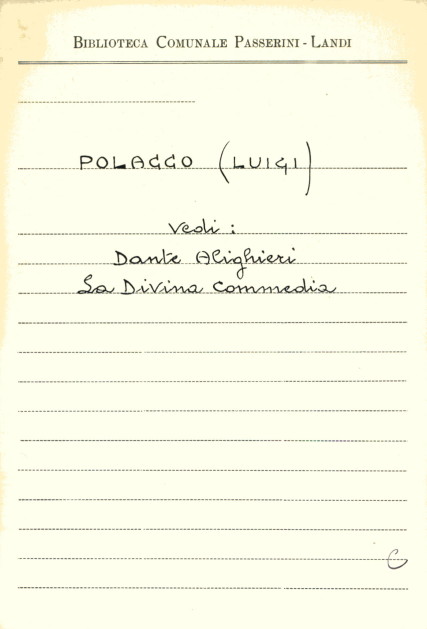 BIBLIOTECA COMUNALE PASSERINI - LANDI
POLACCO (LUIGI)
Vedi :
Dante Alighieri
La Divina Commedia
C